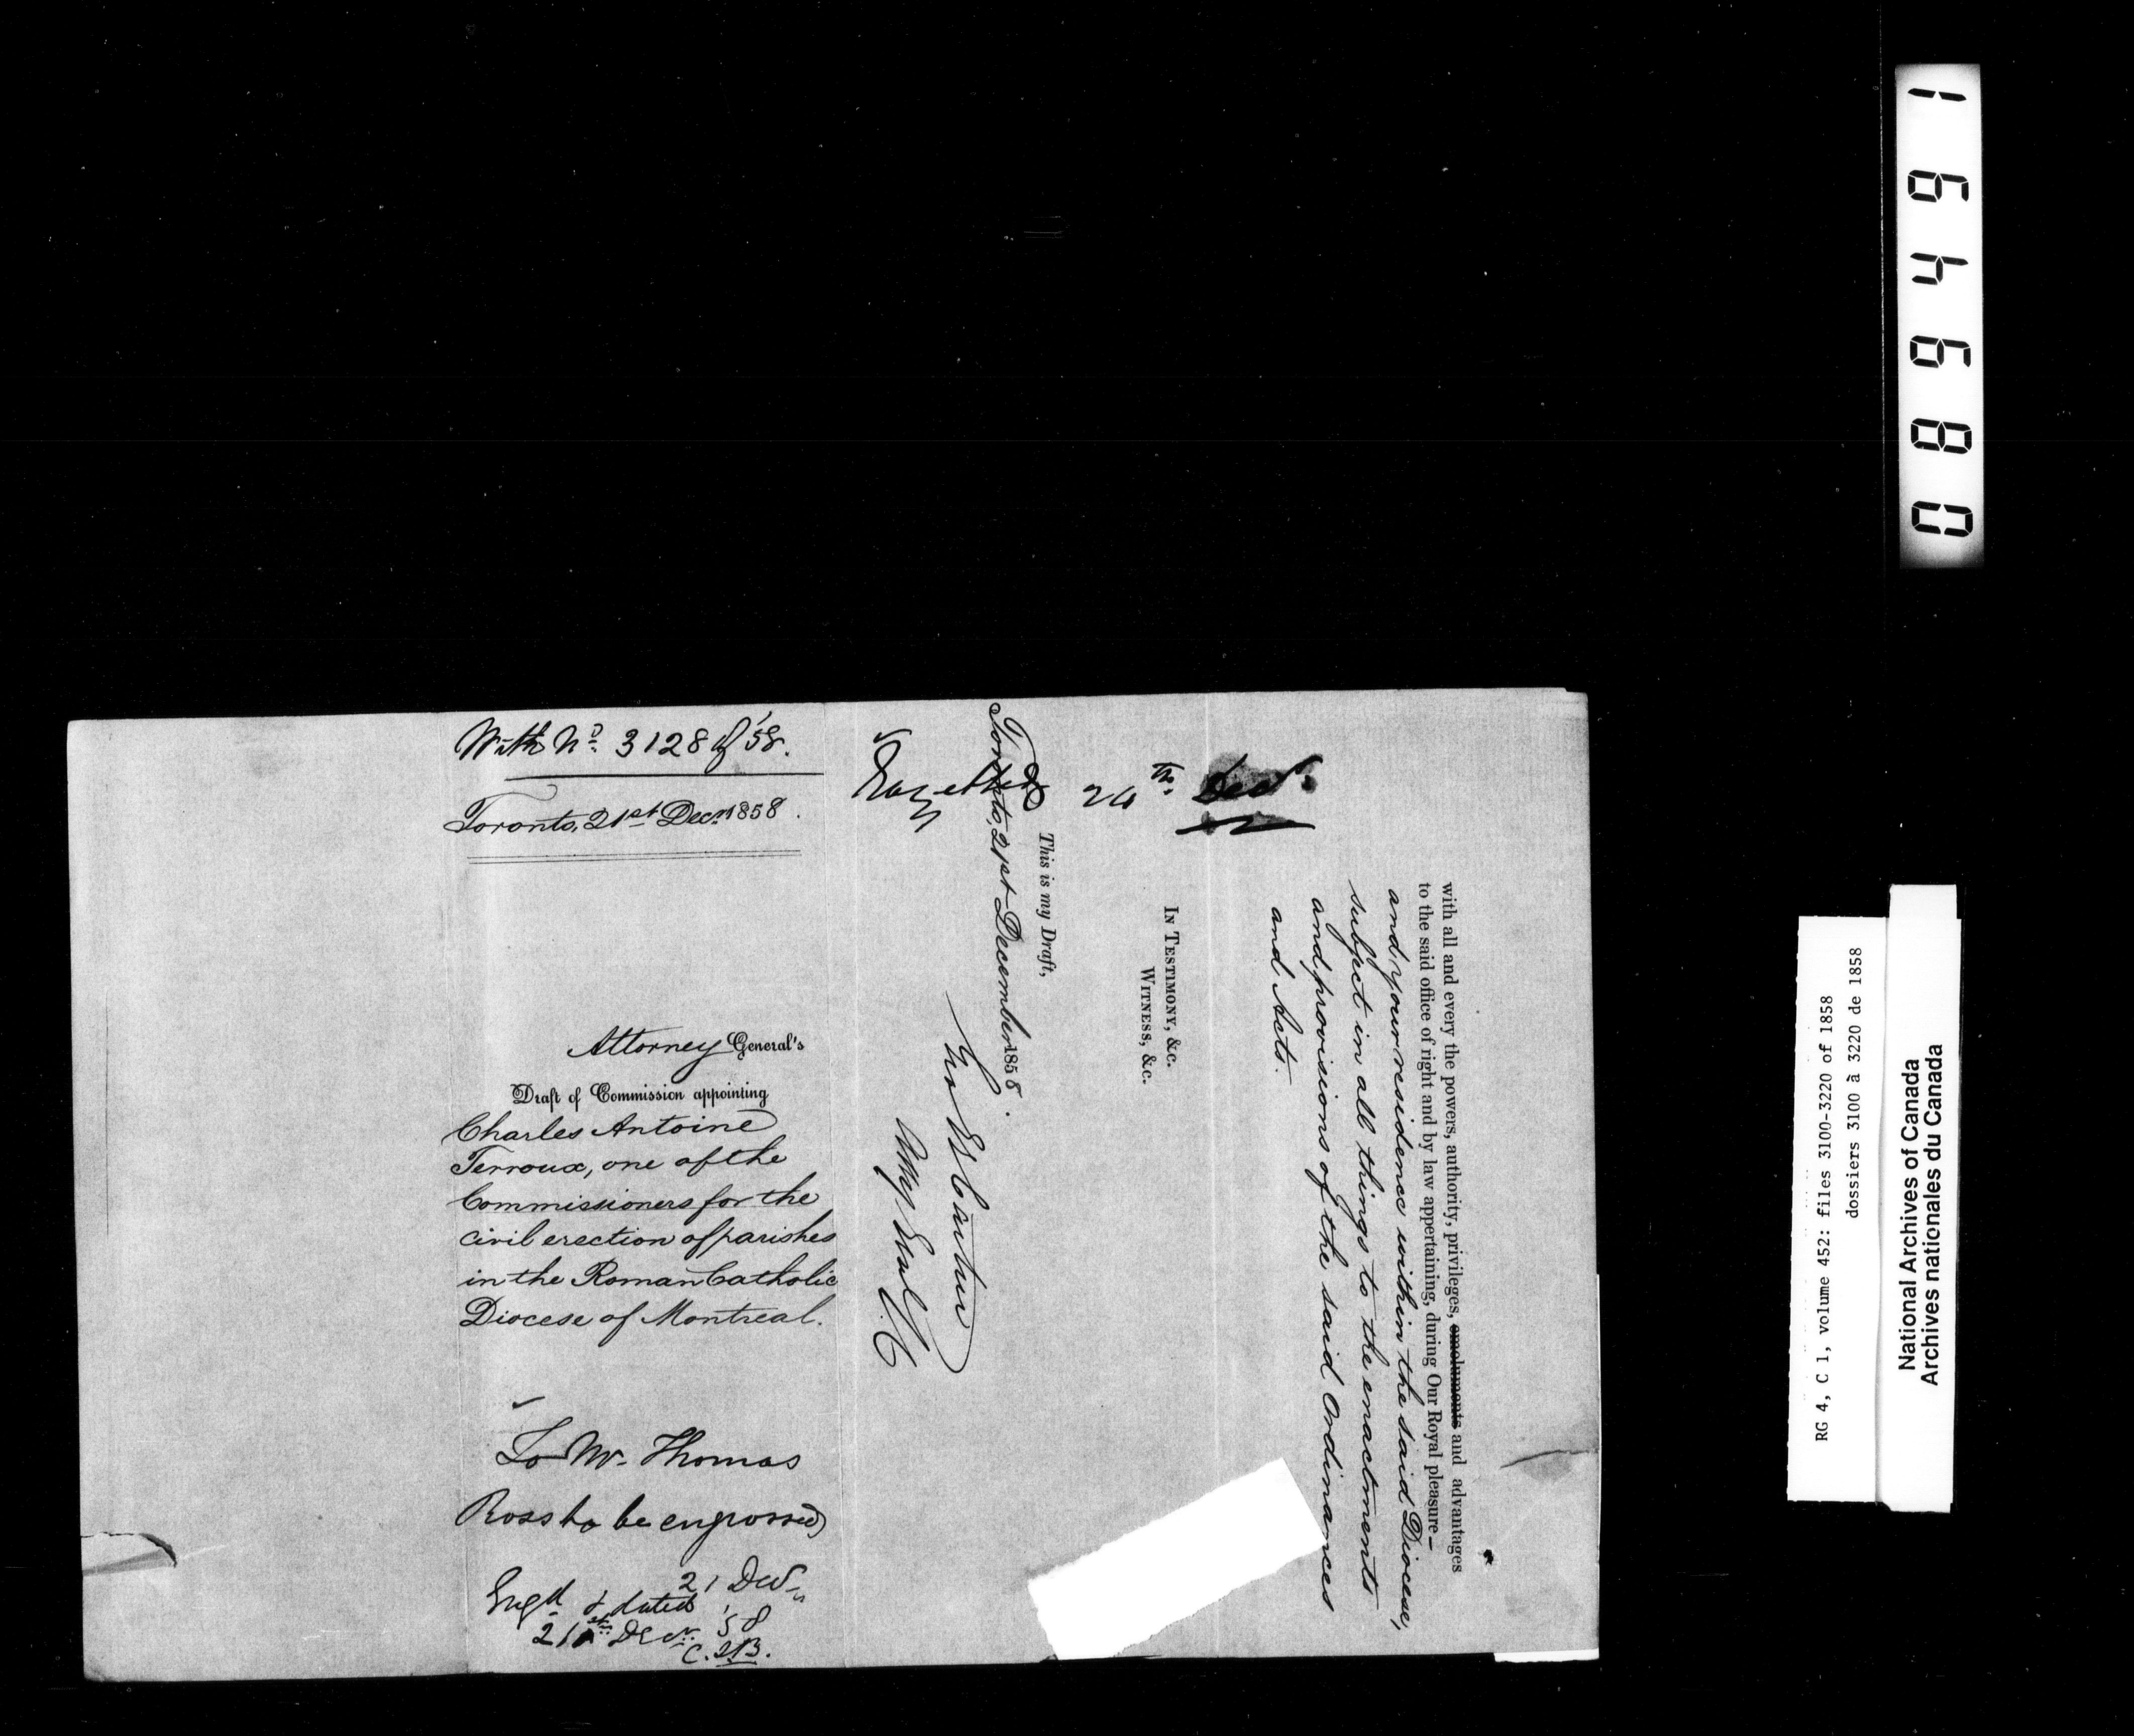 With No. 3128 of '58.
Toronto, 21st Decr. 1858.
Attorney General's
Draft of Commission appointing
Charles Antoine
Terroux, one of the
Commissioners for the
civil erection of parishes
in the Roman Catholic
Diocese of Montreal.
To Mr. Thomas
Ross to be engrossed
21 Decr
'58
Engd & dated
21st Decr.
with all and every the powers, authority, privileges, emoluments and advantages
to the said office of right and by law appertaining, during Our Royal pleasure—
and your residence within the said Diocese,
subject in all things to the enactments
and provisions of the said Ordinances
and Acts.
In Testimony, &c.
Witness, &c.
This is my Draft,
Toronto, 21st December 1858.
Geo Et Cartier
Atty Genl
Gazetted 24th. Decr.
086461
RG 4, C 1, volume 452: files 3100-3220 of 1858
dossiers 3100 à 3220 de 1858
National Archives of Canada
Archives nationales du Canada